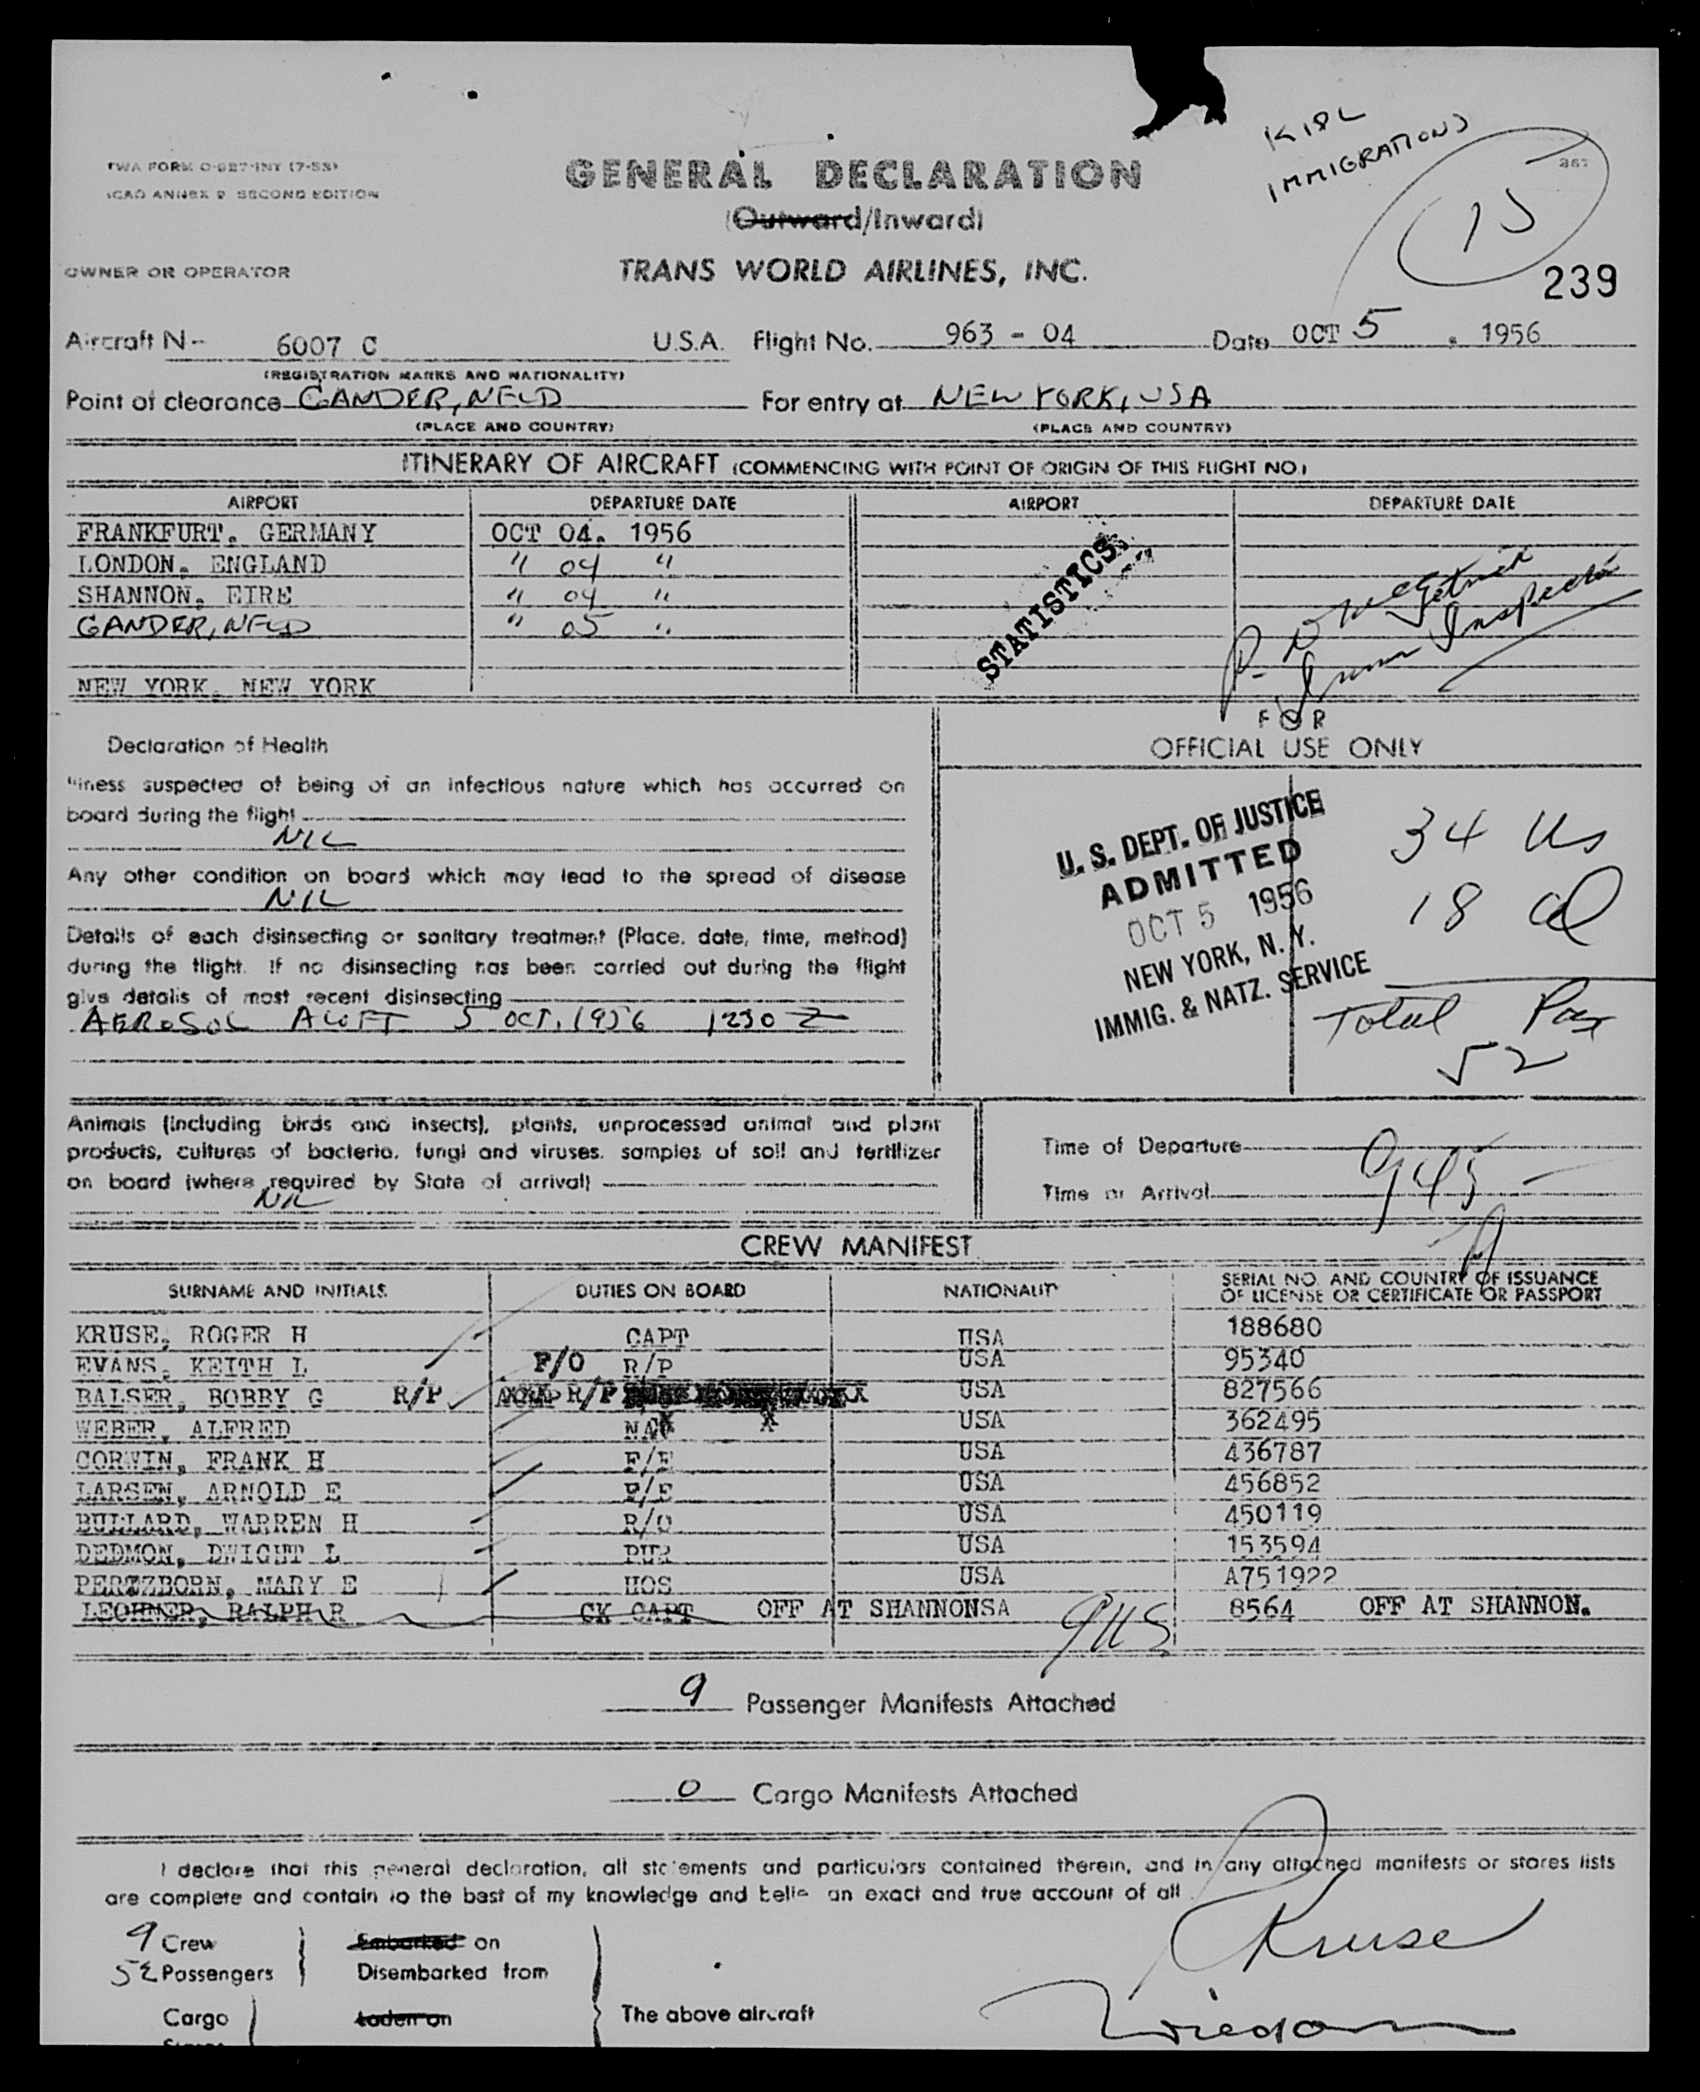 KIPL
IMMIGRATIONS
TWA FORM O-987-INT (7-53)
ICAO ANNEX 9 SECOND EDITION
GENERAL DECLARATION
(Outward/Inward)
15
OWNER OR OPERATOR
TRANS WORLD AIRLINES, INC.
239
Aircraft N- 6007 C U.S.A. Flight No. 963 - 04 Date OCT 5, 1956
(REGISTRATION MARKS AND NATIONALITY)
Point of clearance GANDER, NFLD For entry at NEW YORK, USA
(PLACE AND COUNTRY) (PLACE AND COUNTRY)
ITINERARY OF AIRCRAFT (COMMENCING WITH POINT OF ORIGIN OF THIS FLIGHT NO.)
AIRPORT DEPARTURE DATE AIRPORT DEPARTURE DATE
FRANKFURT, GERMANY OCT 04, 1956
LONDON, ENGLAND " 04 "
SHANNON, EIRE " 04 "
GANDER, NFLD " 05 "
NEW YORK, NEW YORK
STATISTICS
Inspector
FOR
OFFICIAL USE ONLY
Declaration of Health
Illness suspected of being of an infectious nature which has occurred on
board during the flight
NIL
Any other condition on board which may lead to the spread of disease
NIL
Details of each disinsecting or sanitary treatment (Place, date, time, method)
during the flight. If no disinsecting has been carried out during the flight
give details of most recent disinsecting
AEROSOL ALOFT 5 OCT. 1956 1230 Z
U. S. DEPT. OF JUSTICE
ADMITTED
OCT 5 1956
NEW YORK, N. Y.
IMMIG. & NATZ. SERVICE
34 US
18 al
Total Pax
52
Animals (including birds and insects), plants, unprocessed animal and plant
products, cultures of bacteria, fungi and viruses, samples of soil and fertilizer
on board (where required by State of arrival)
NIL
Time of Departure
Time of Arrival 945
CREW MANIFEST
SURNAME AND INITIALS DUTIES ON BOARD NATIONALITY SERIAL NO. AND COUNTRY OF ISSUANCE
OF LICENSE OR CERTIFICATE OR PASSPORT
KRUSE, ROGER H CAPT USA 188680
EVANS, KEITH L F/O R/P USA 95340
BALSER, BOBBY G R/P R/P USA 827566
WEBER, ALFRED NAV USA 362495
CORWIN, FRANK H F/E USA 436787
LARSEN, ARNOLD E F/E USA 456852
BULLARD, WARREN H R/O USA 450119
DEDMON, DWIGHT L PUR USA 153594
PERTZBORN, MARY E HOS USA A751922
LECHNER, RALPH R CK CAPT OFF AT SHANNONSA 8564 OFF AT SHANNON.
9 Passenger Manifests Attached
0 Cargo Manifests Attached
I declare that this general declaration, all statements and particulars contained therein, and in any attached manifests or stores lists
are complete and contain to the best of my knowledge and belie an exact and true account of all
9 Crew Embarked on
52 Passengers Disembarked from
Cargo Laden on The above aircraft
Kruse